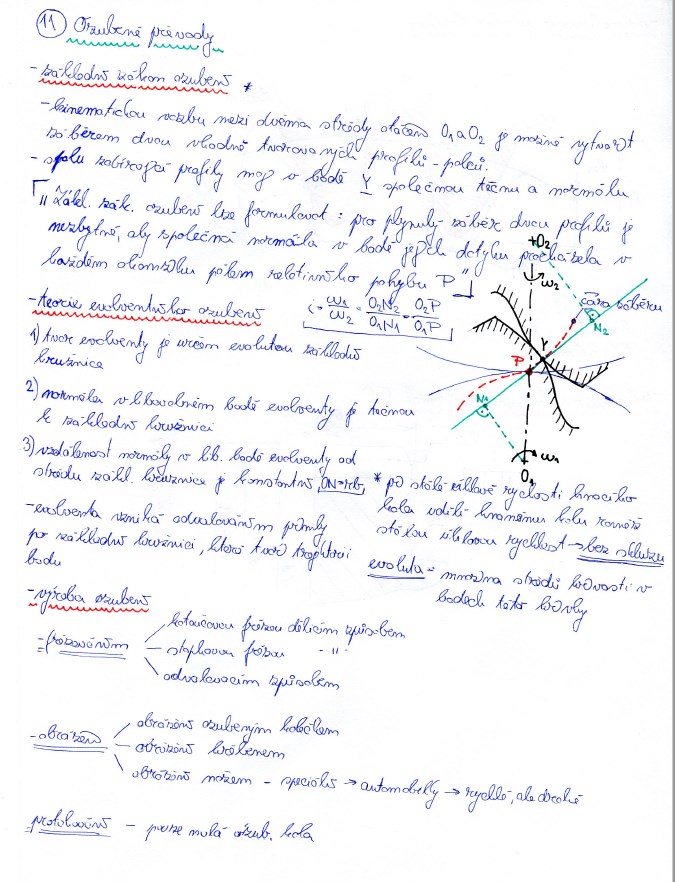 11 Ozubené převody
- základní zákon ozubení *
- kinematickou vazbu mezi dvěma středy otáčení O1 a O2 je možné vytvořit
záběrem dvou vhodně tvarovaných profilů - palců.
- spolu zabírající profily mají v bodě Y společnou tečnu a normálu
" Zákl. zák. ozubení lze formulovat: pro plynulý záběr dvou profilů je
nezbytné, aby společná normála v bodě jejich dotyku procházela v
každém okamžiku pólem relativního pohybu P "
- teorie evolventního ozubení
i = ω1/ω2 = O2N2/O1N1 = O2P/O1P
1) tvar evolventy je určen evolutou základní
kružnice
2) normála v libovolném bodě evolventy je tečnou
k základní kružnici
3) vzdálenost normály v lib. bodě evolventy od
středu zákl. kružnice je konstantní, ON=rb
- evolventa vzniká odvalováním přímky
po základní kružnici, která tvoří trajektorii
bodu
+O2
ω2
čára záběru
N2
Y
P
N1
ω1
O1
* při stálé úhlové rychlosti hnacího
kola uděluje hnanému kolu rovněž
stálou úhlovou rychlost → bez skluzu
evoluta = množina středů křivosti v
bodech této křivky
- výroba ozubení
- frézováním
kotoučovou frézou dělicím způsobem
stopkovou frézou - " -
odvalovacím způsobem
- obrážení
obrážení ozubeným kolečkem
obrážení hřebenem
obrážení nožem - speciální → automobilky → rychlé, ale drahé
- protahování - pouze malá ozub. kola